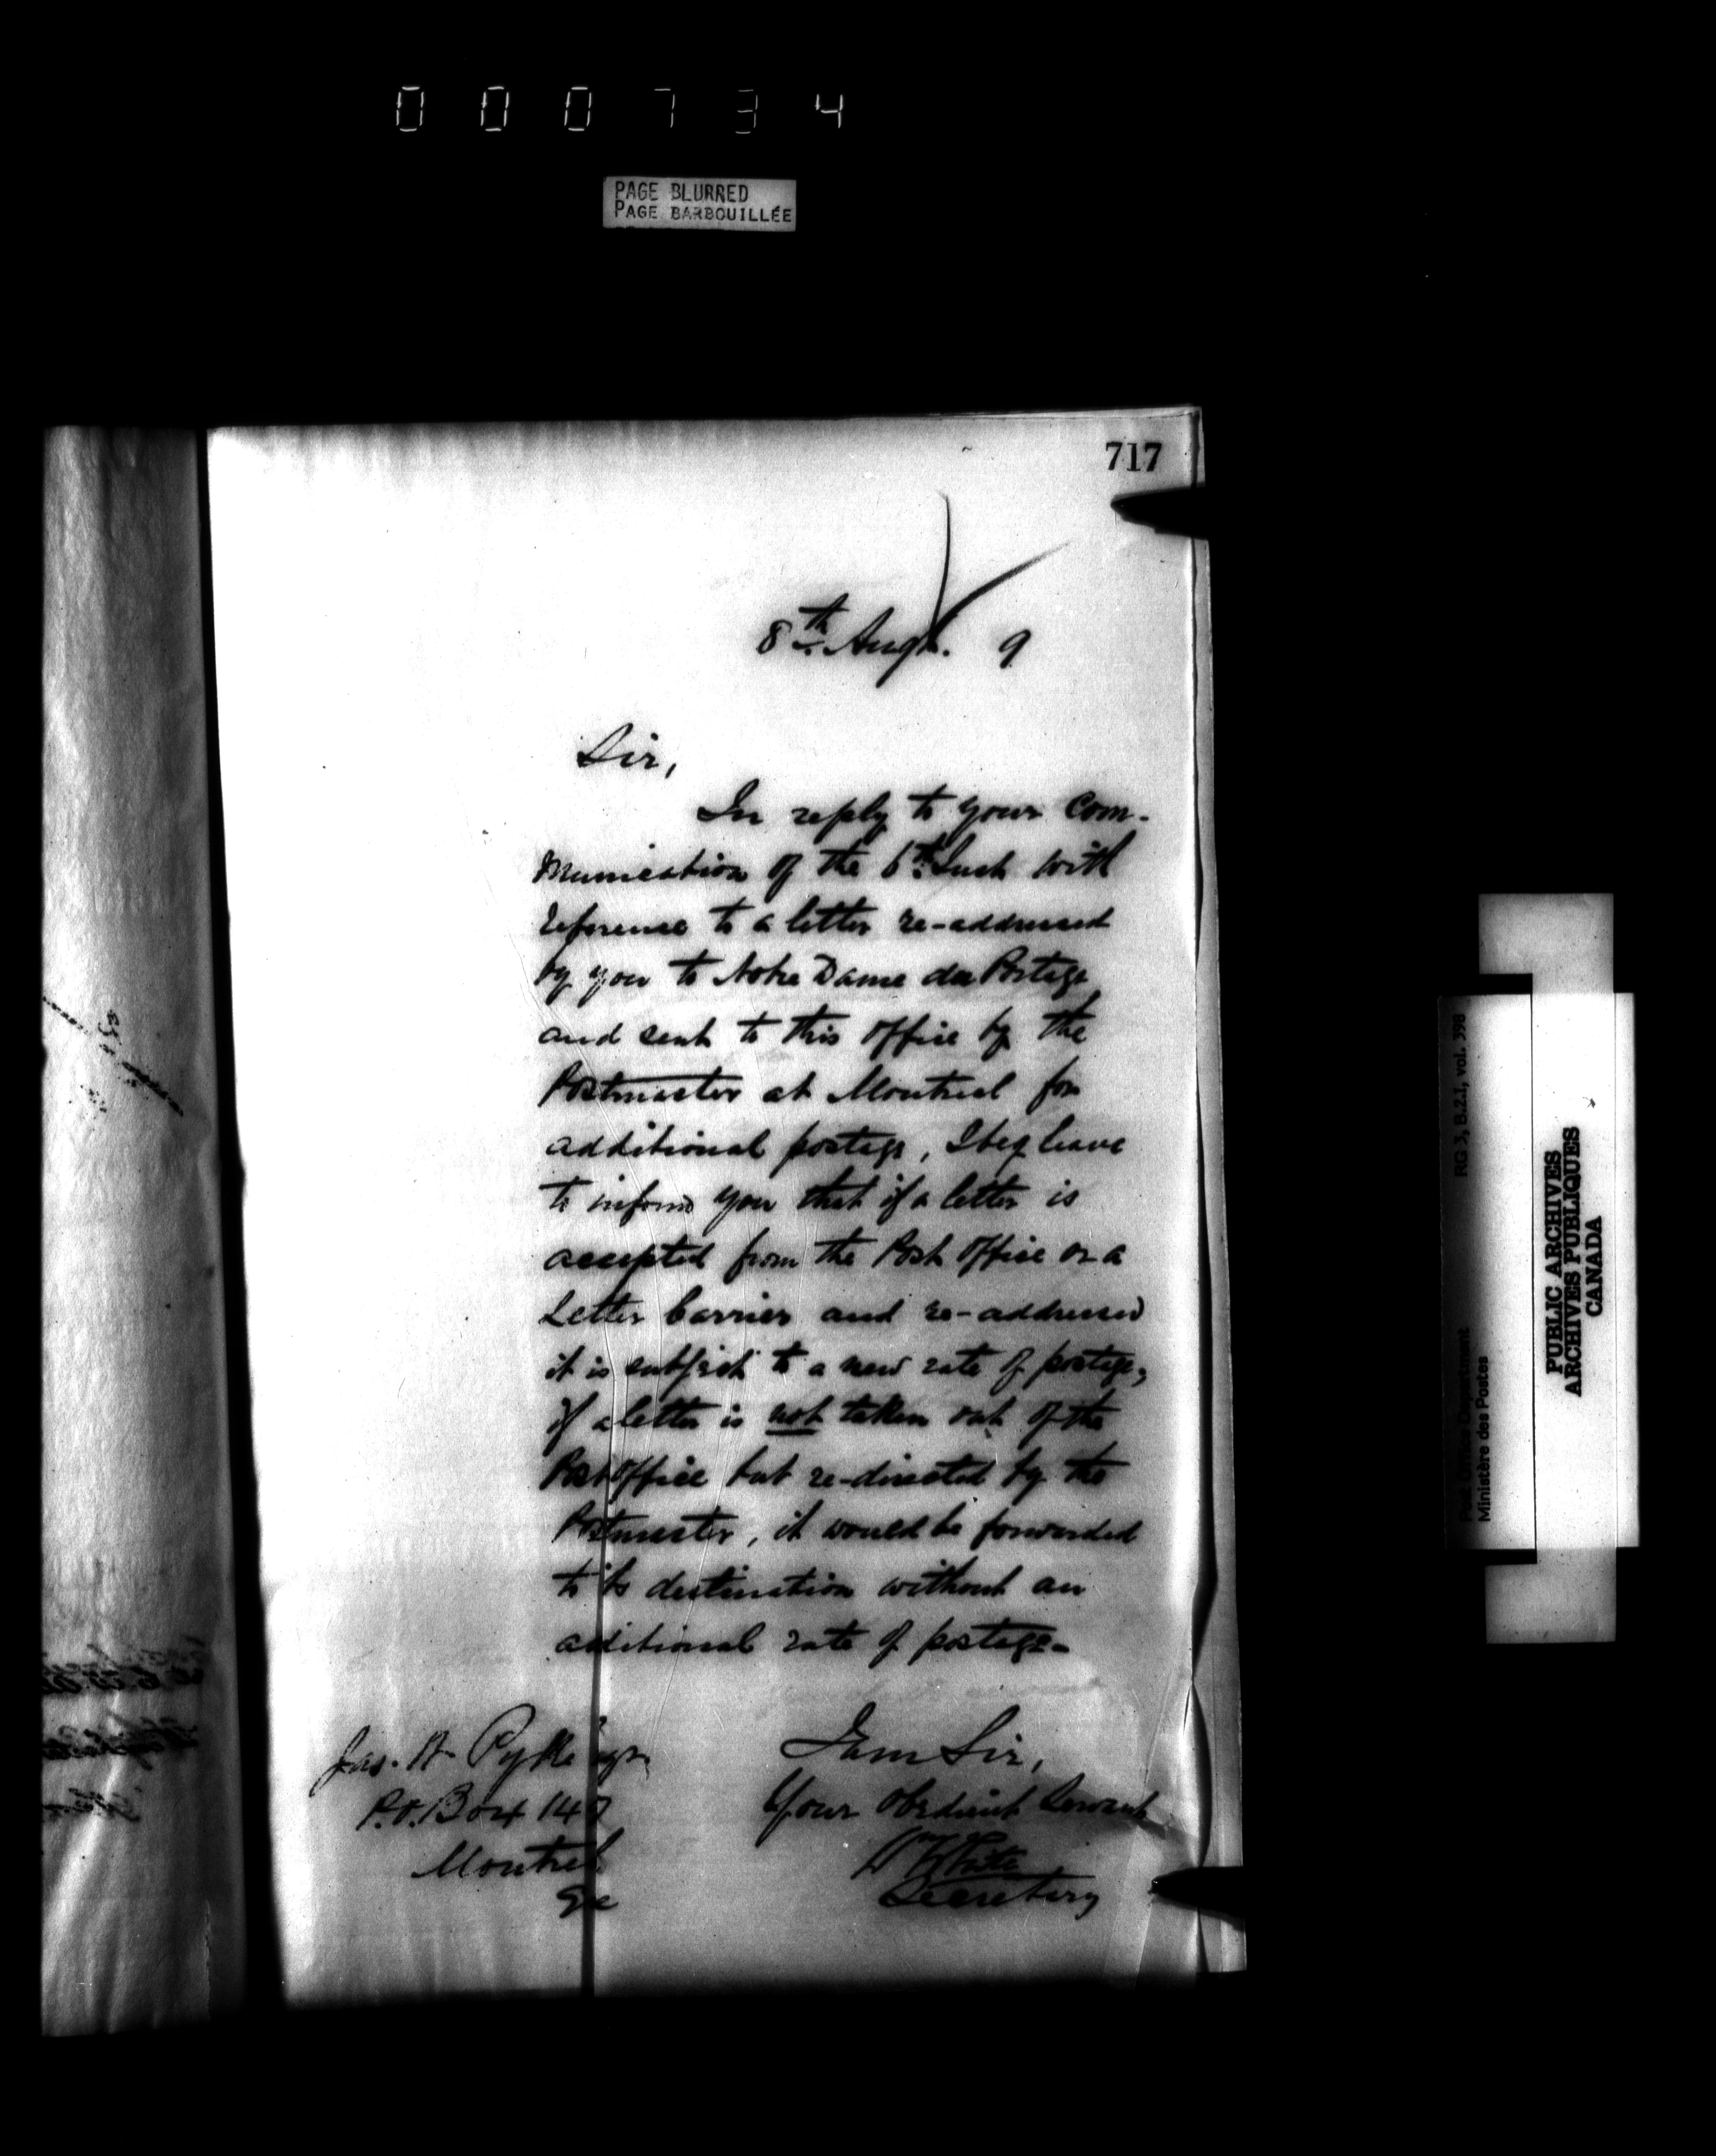 000734
PAGE BLURRED
PAGE BARBOUILLÉE
717
8th Augt. 9
Sir,
In reply to your Com-
munication of the 6th Inst with
reference to a letter re-addressed
by you to Notre Dame du Portage
and sent to this office by the
Postmaster at Montreal for
additional postage, I beg leave
to inform you that if a letter is
accepted from the Post Office or a
Letter Carrier and re-addressed
it is subject to a new rate of postage,
if a letter is not taken out of the
Post Office but re-directed by the
Postmaster, it would be forwarded
to its destination without an
aditional rate of postage-
I am Sir,
Your Obedient Servant
Wm White
Secretary
Jas. H Pyke
P.O. Box 147
Montreal
RG 3, B.2.1, vol. 398
Post Office Department
Ministère des Postes
PUBLIC ARCHIVES
ARCHIVES PUBLIQUES
CANADA